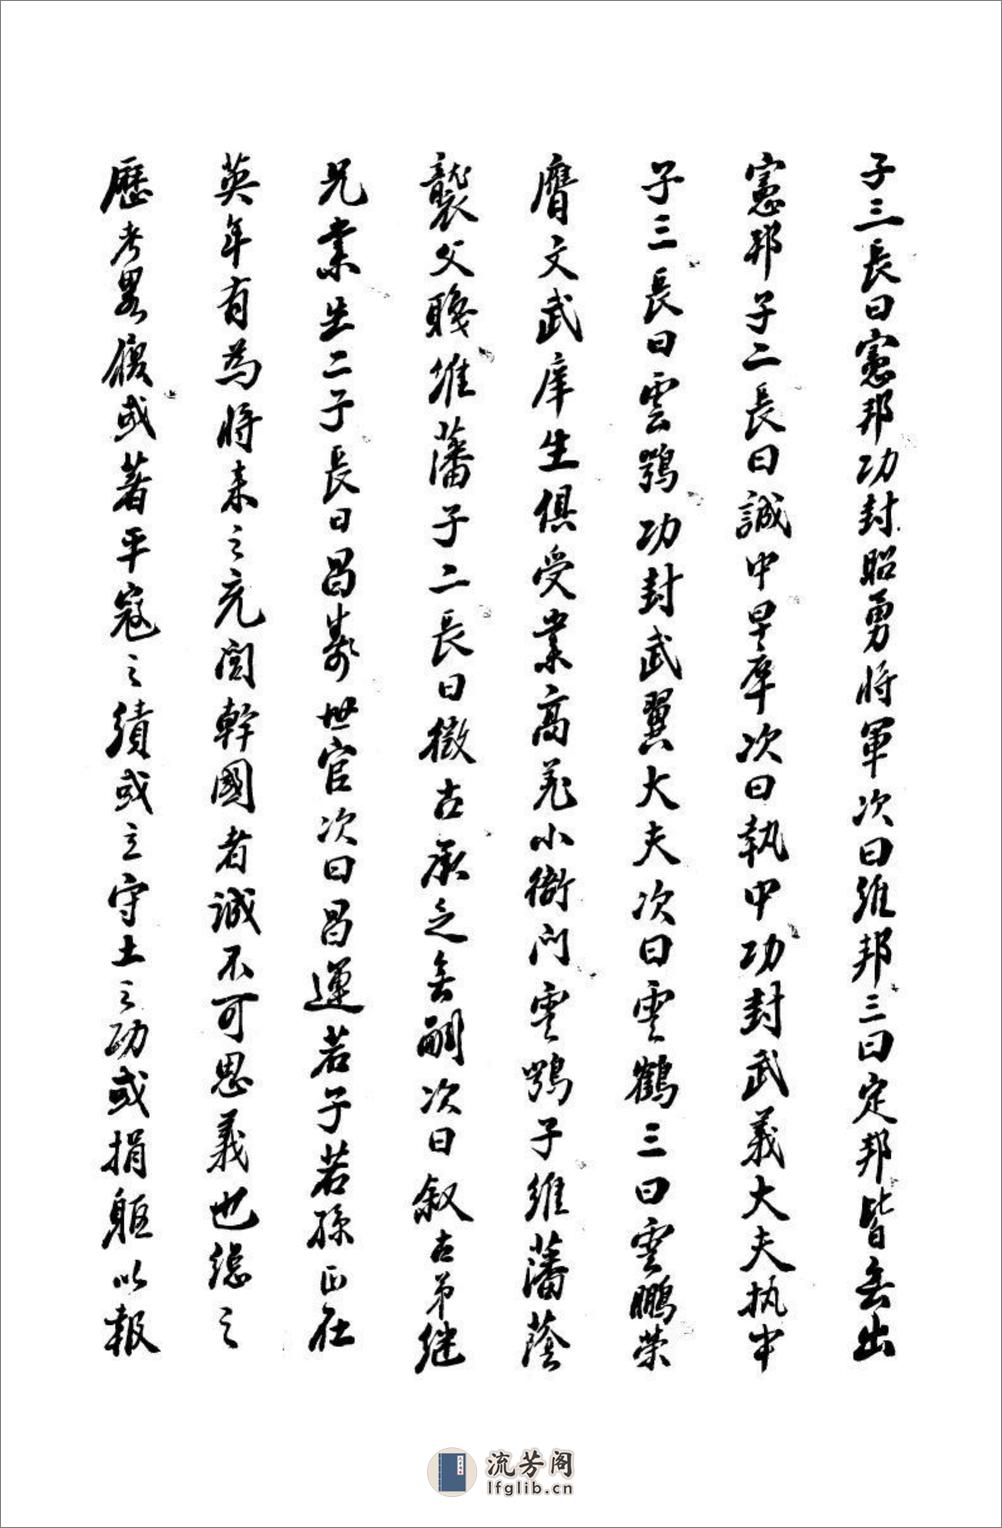 子三長曰憲邦功封昭勇將軍次曰維邦三曰定邦皆無出
憲邦子二長曰誠中早卒次曰執中功封武義大夫执中
子三長曰雲鶚功封武翼大夫次曰雲鶴三曰雲鵬荣
膺文武庠生俱受業高花小衙门雲鶚子維藩蔭
襲父職維藩子二長曰徵古承之無嗣次曰叙古弟继
兄業生二子長曰昌壽世官次曰昌運若子若孫正在
英年有為將来之亢闾幹國者誠不可思義也總之
歷考畧履或著平寇之績或立守土之功或捐躯以報
流芳阁
lfglib.cn